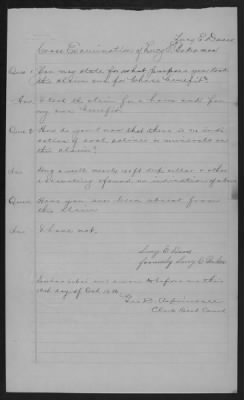 Lucy E Davis
Cross Examination of Lucy E
Ques 1 You may state for what purpose you took
this claim and for whose benefit?
Ans I took the claim for a home and for
my own benefit
Ques 2 How do you know that there is no indi-
cation of coal salines or minerals on
this claim?
Ans Dug a well nearly 20 ft deep cellar & other
no indication of
Ques Have you ever been absent from
this claim
Ans I have not.
Lucy E Davis
formerly Lucy E
Subscribed and sworn to before me this
day of Oct
Geo
Clerk Dist Court